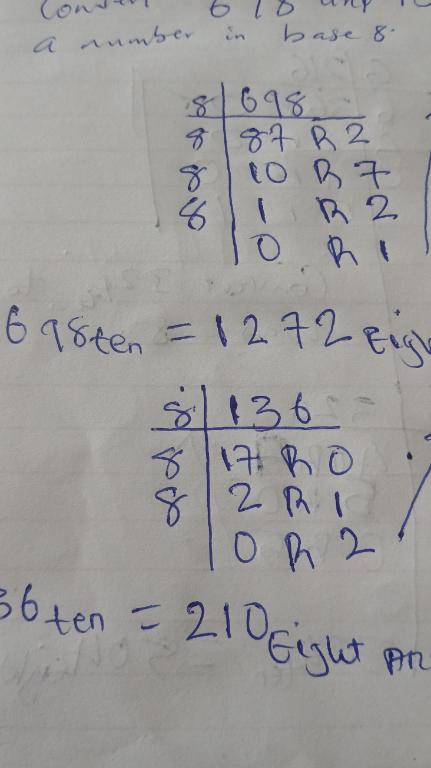 a number in base 8.
8 698
8 87 R 2
8 10 R 7
8 1 R 2
0 R 1
698ten = 1272 Eigh
8 136
8 17 R 0
8 2 R 1
0 R 2
36 ten = 210 Eight An